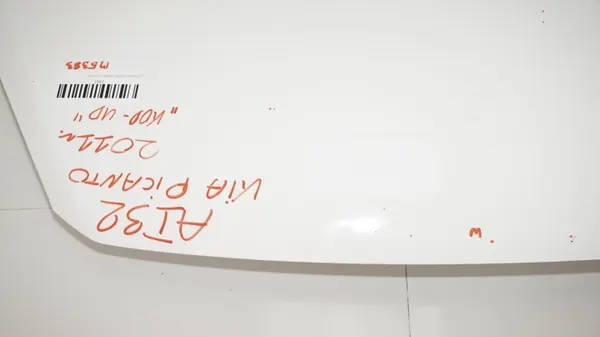 AI32
KIA PICANTO
2011r.
"KOD-UD"
M5383